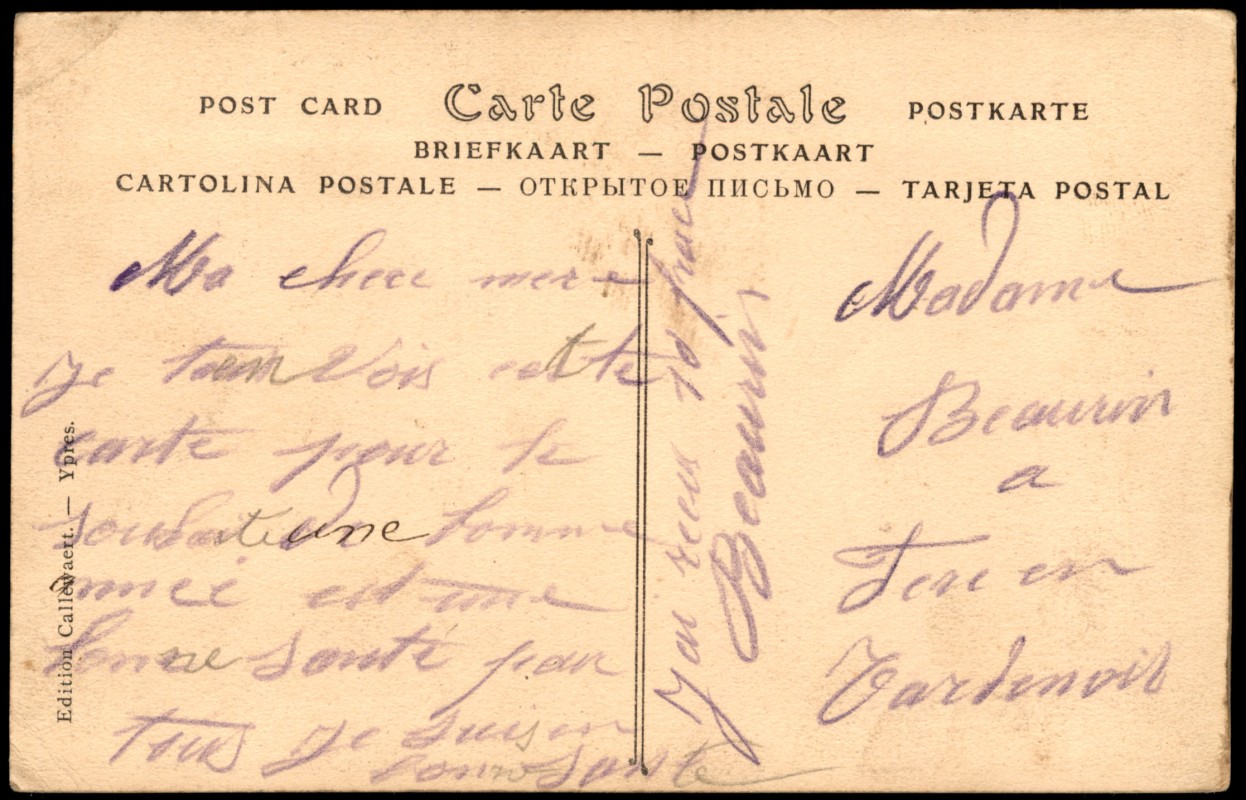 POST CARD Carte Postale POSTKARTE
BRIEFKAART — POSTKAART
CARTOLINA POSTALE — ОТКРЫТОЕ ПИСЬМО — TARJETA POSTAL
Ma chere mere
je t'en vois cette
carte pour te
souhaite une bonne
année est une
bonne santé pour
tous je suis en
bonne sante
J'ai recu 10 franc
Beaurin
Madame
Beaurin
a
Fere en
Tardenois
Edition Callewaert. — Ypres.